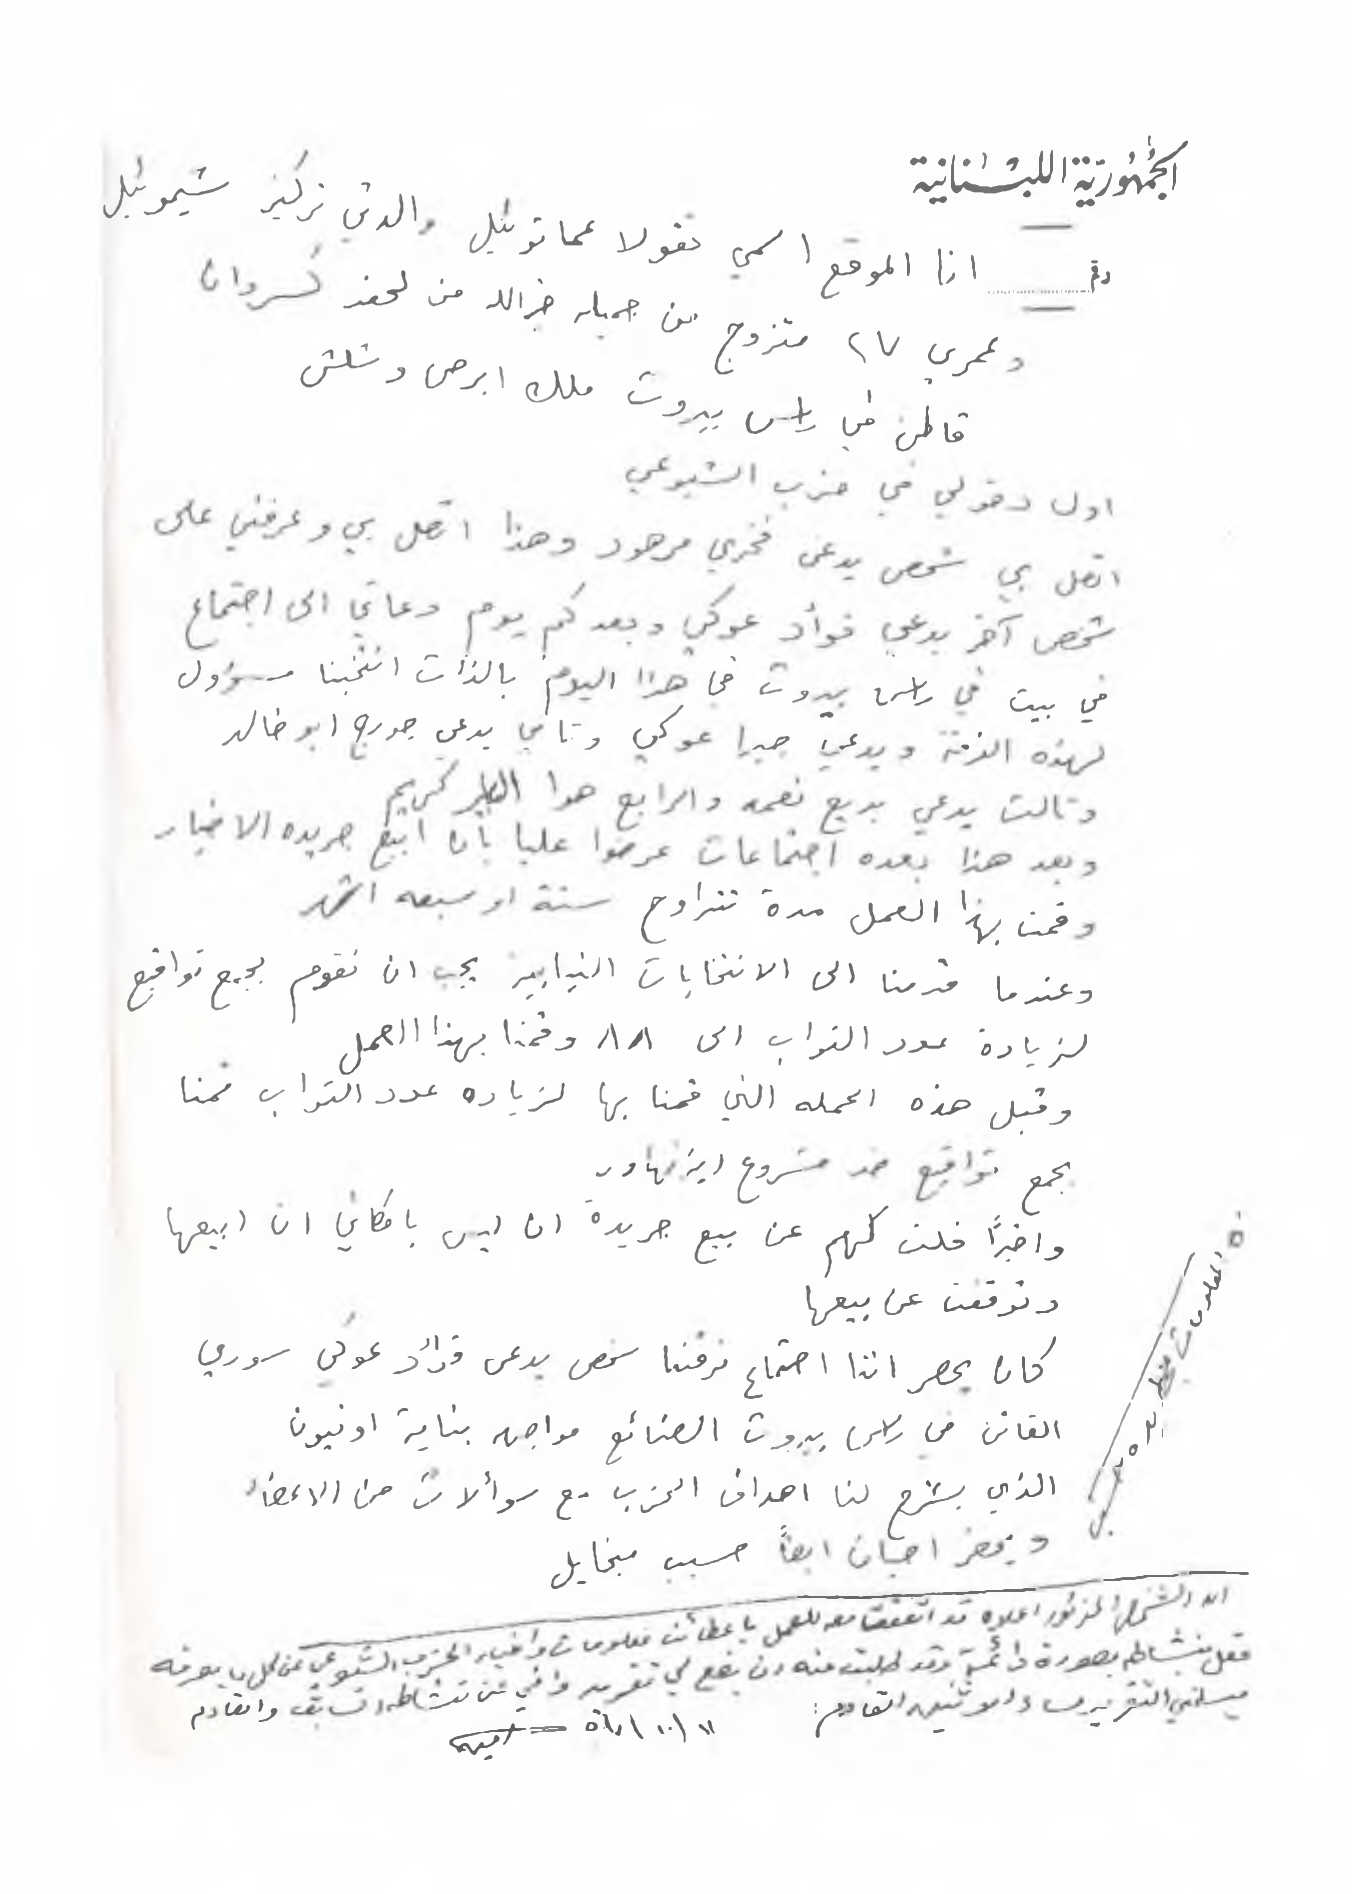 الجمهورية اللبنانية
رقم
انا الموقع اسمي نقولا عمانوئيل والدتي نركيز شيموئيل
وعمري ٢٧ متزوج من جميله خيرالله من لحفد كسروان
قاطن في راس بيروت ملك ابرص وشلش
اول دخولي في حزب الشيوعي
اتصل بي شخص يدعى فخري مرهود وهذا اتصل بي وعرفني على
شخص آخر يدعي فوأد عوكي وبعد كم يوم دعاني الى اجتماع
في بيت في راس بيروت في هذا اليوم بالذات انتخبنا مسؤول
لهذه الفرقة ويدعي جبرا عوكي وتاني يدعي جورج ابو خالد
وتالت يدعي بديع نعمه والرابع هوا كريم
وبعد هذا بعده اجتماعات عرضوا عليا بأن ابيع جريده الاخبار
وقمت بهذا العمل مدة تتراوح ستة او سبعه اشهر
وعندما قدمنا الى الانتخابات النيابية يجب ان نقوم بجمع تواقيع
لزيادة عدد النواب الى ٨٨ وقمنا بهذا العمل
وقبل هذه الحمله التي قمنا بها لزياده عدد النواب قمنا
بجمع تواقيع ضد مشروع ايزنهاور
واخيراً قلت لهم عن بيع جريدة ان ليس بامكاني ان ابيعها
وتوقفت عن بيعها
كان يحضر اثنا اجتماع فرقتنا شخص يدعى فؤاد عوكي سوري
القاطن في راس بيروت الصنائع مواجهه بناية اونيون
الذي يشرح لنا اهداف الحزب مع سوألات من الاعضاء
ويحضر احيان ايضاً حسيب ميخايل
المعلومات
ان الشخص المذكور اعلاه قد اتفقت معه للعمل باعطائنا معلومات واخبار الحزب الشيوعي عن كل ما يعرفه
بنشاطه بصورة دائمة وقد طلبت منه ان يضع لي تقرير وافي عن نشاطه السابق والقادم
سيسلمني التقرير مساء الاثنين القادم: